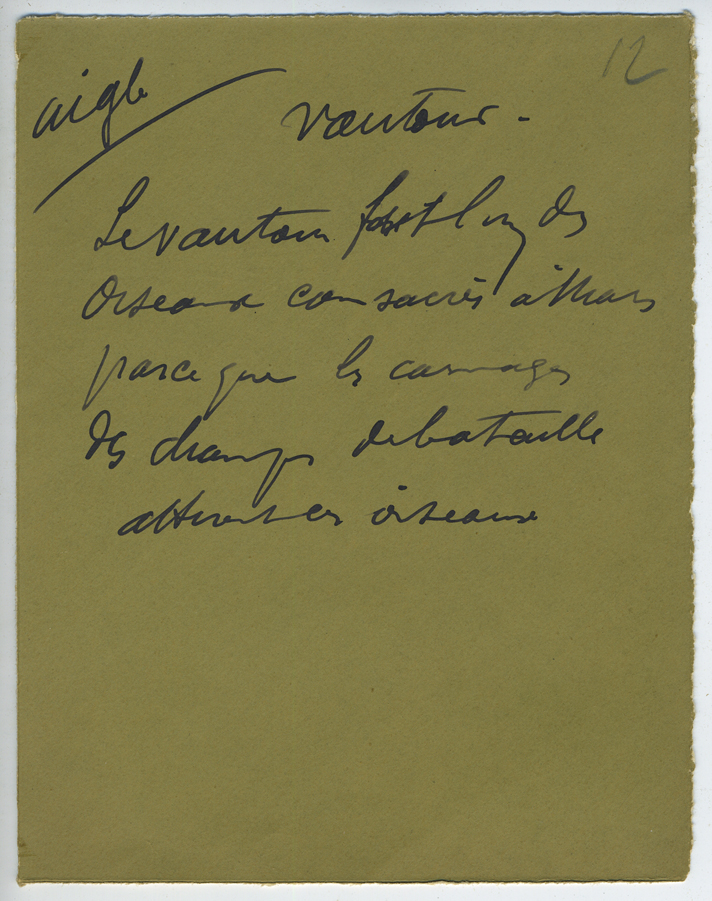 12
aigle
vautour.
Le vautour fut l'un des
oiseaux consacrés à Mars
parce que les carnages
des champs de bataille
attirent ces oiseaux